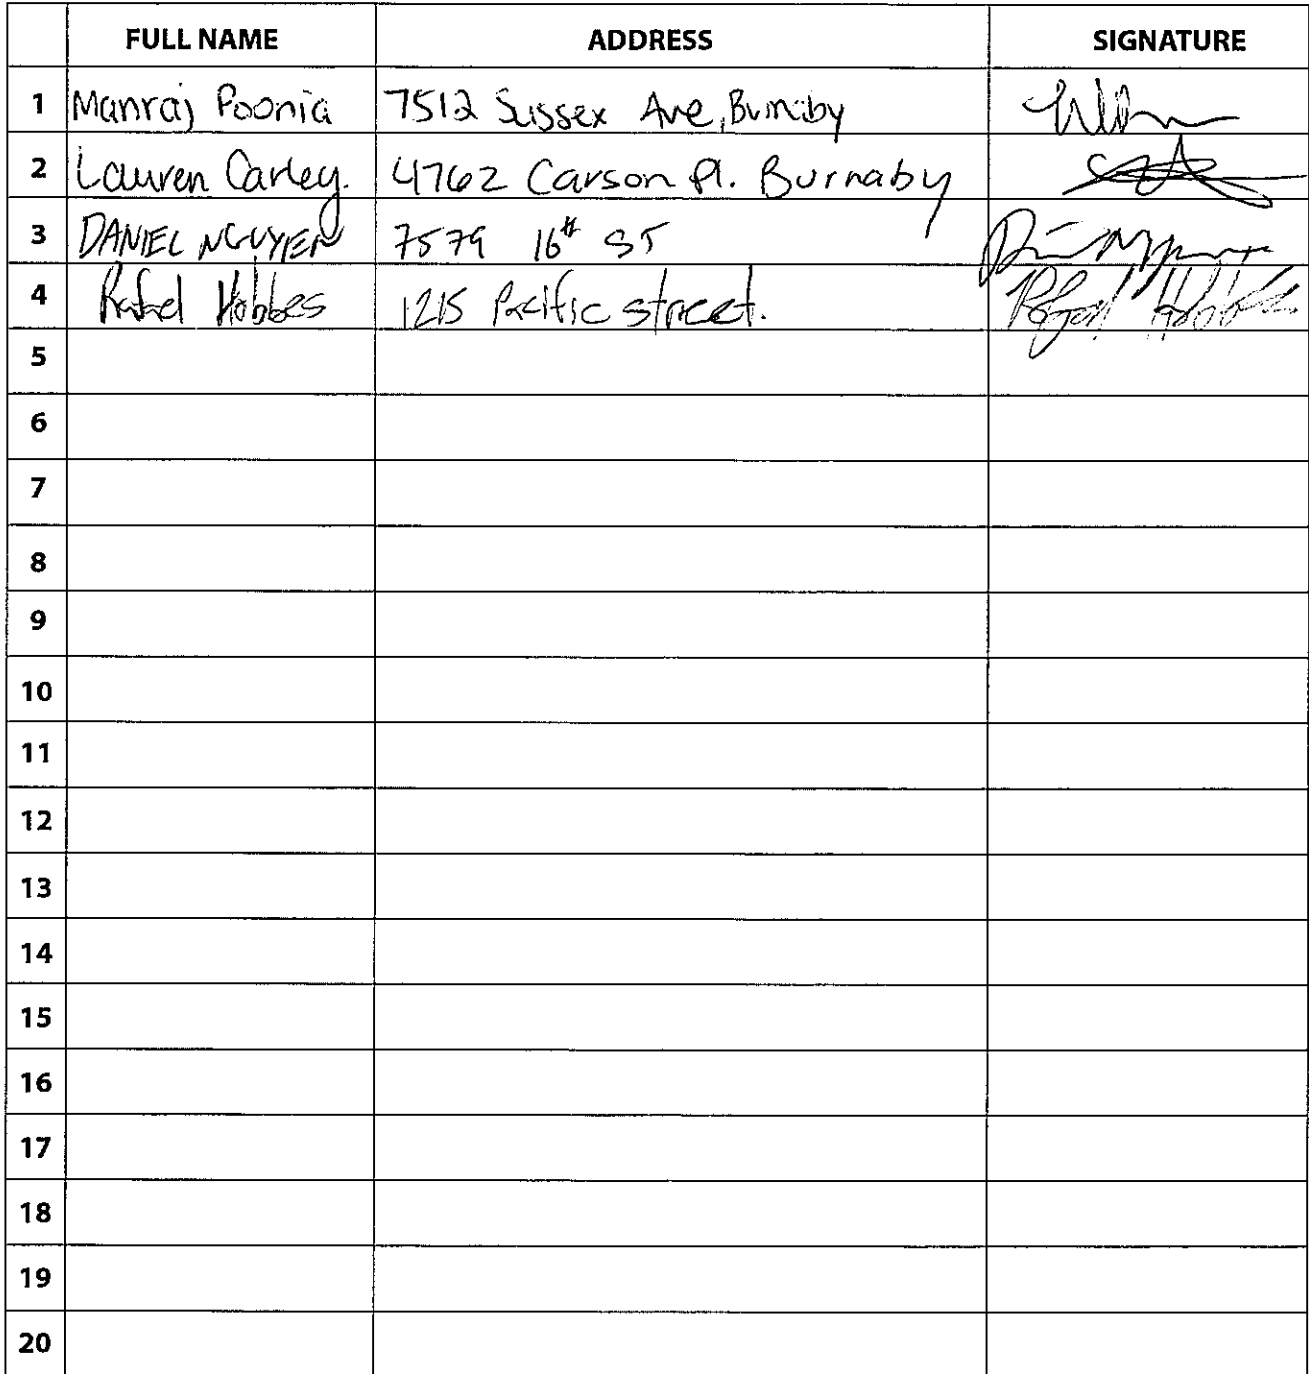 FULL NAME ADDRESS SIGNATURE
1 Manraj Poonia 7512 Sussex Ave, Burnaby
2 Lauren Carley. 4762 Carson Pl. Burnaby
3 DANIEL NGUYEN 7579 16th ST
4 Rafael Hobbes 1215 Pacific street.
5
6
7
8
9
10
11
12
13
14
15
16
17
18
19
20